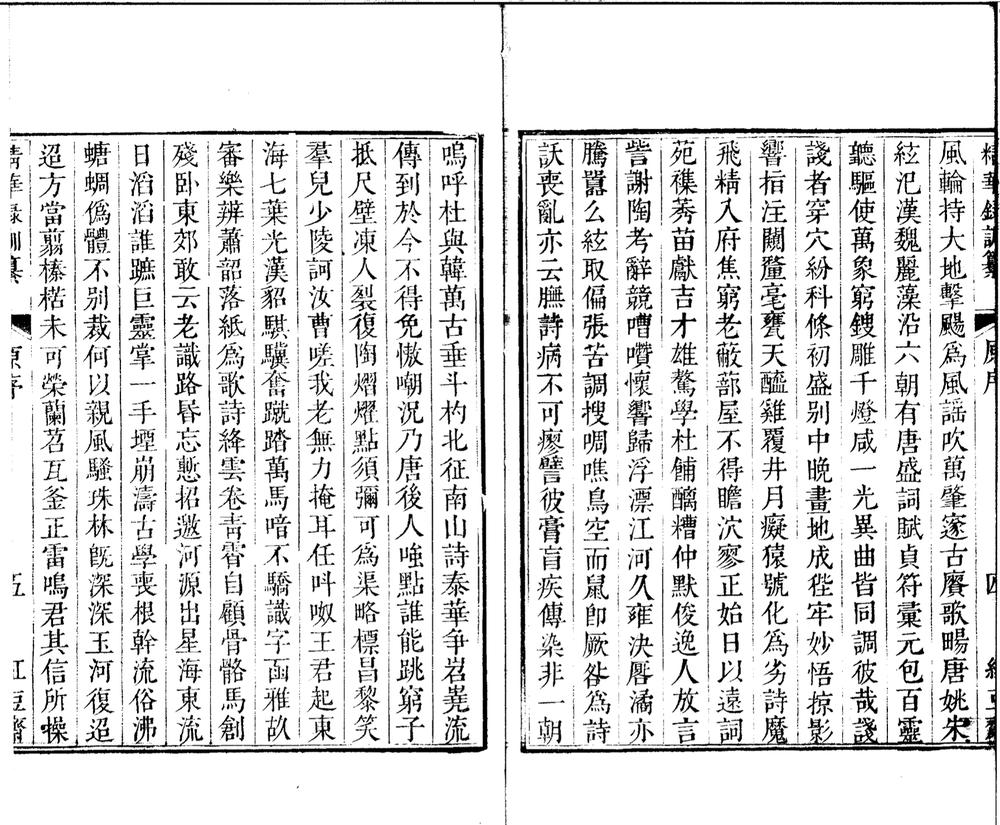 風輪持大地擊颺為風謠吹萬肇邃古賡歌暘唐姚朱
絃汜漢魏麗藻沿六朝有唐盛詞賦貞符彙元包百靈
聽驅使萬象窮鎪雕千燈咸一光異曲皆同調彼哉諓
諓者穿穴紛科條初盛別中晚畫地成狴牢妙悟掠影
響指注闚釐毫甕天醯雞覆井月癡猿號化為劣詩魔
飛精入府焦窮老蔽蔀屋不得瞻泬寥正始日以遠詞
苑穕莠苗獻吉才雄鷔學杜餔醨糟仲默俊逸人放言
訾謝陶考辭競嘈囋懷響歸浮漂江河久雍決屬潏亦
騰囂么絃取偏張苦調搜啁噍鳥空而鼠卽厥咎為詩
訞喪亂亦云膴詩病不可瘳譬彼膏肓疾傳染非一朝
嗚呼杜與韓萬古垂斗杓北征南山詩泰華爭岧嶤流
傳到於今不得免傲嘲況乃唐後人嗤點誰能跳窮子
抵尺璧凍人裂復陶熠燿點須彌可為渠略標昌黎笑
羣兒少陵訶汝曹嗟我老無力掩耳任叫呶王君起東
海七葉光漢貂騏驥奮蹴踏萬馬喑不驕識字函雅故
審樂辨蕭韶落紙為歌詩絳雲卷靑霄自顧骨骼馬創
殘卧東郊敢云老識路昏忘慙招邀河源出星海東流
日滔滔誰蹠巨靈掌一手堙崩濤古學喪根幹流俗沸
螗蜩僞體不別裁何以親風騷珠林旣深深玉河復迢
迢方當翦榛楛未可榮蘭苕瓦釜正雷鳴君其信所操
精華錄訓纂
原序
五
紅豆齋